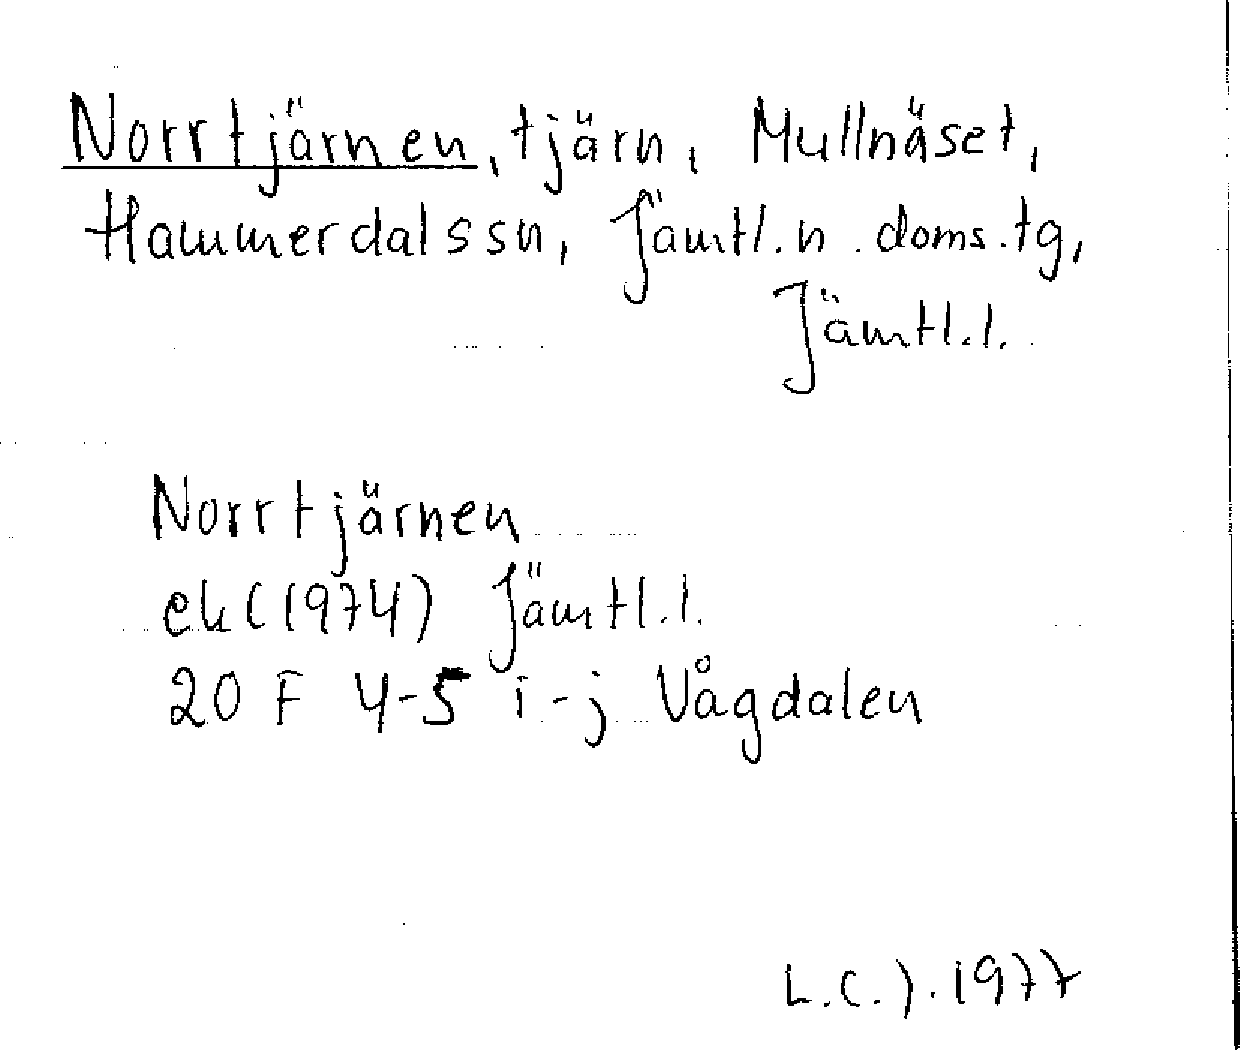 Norrtjärnen, tjärn, Mullnäset,
Hammerdals sn, Jämtl. n. doms. tg,
Jämtl. l.
Norrtjärnen
ek (1974) Jämtl. l.
20 F 4-5 i-j Vågdalen
L.C.J. 1977